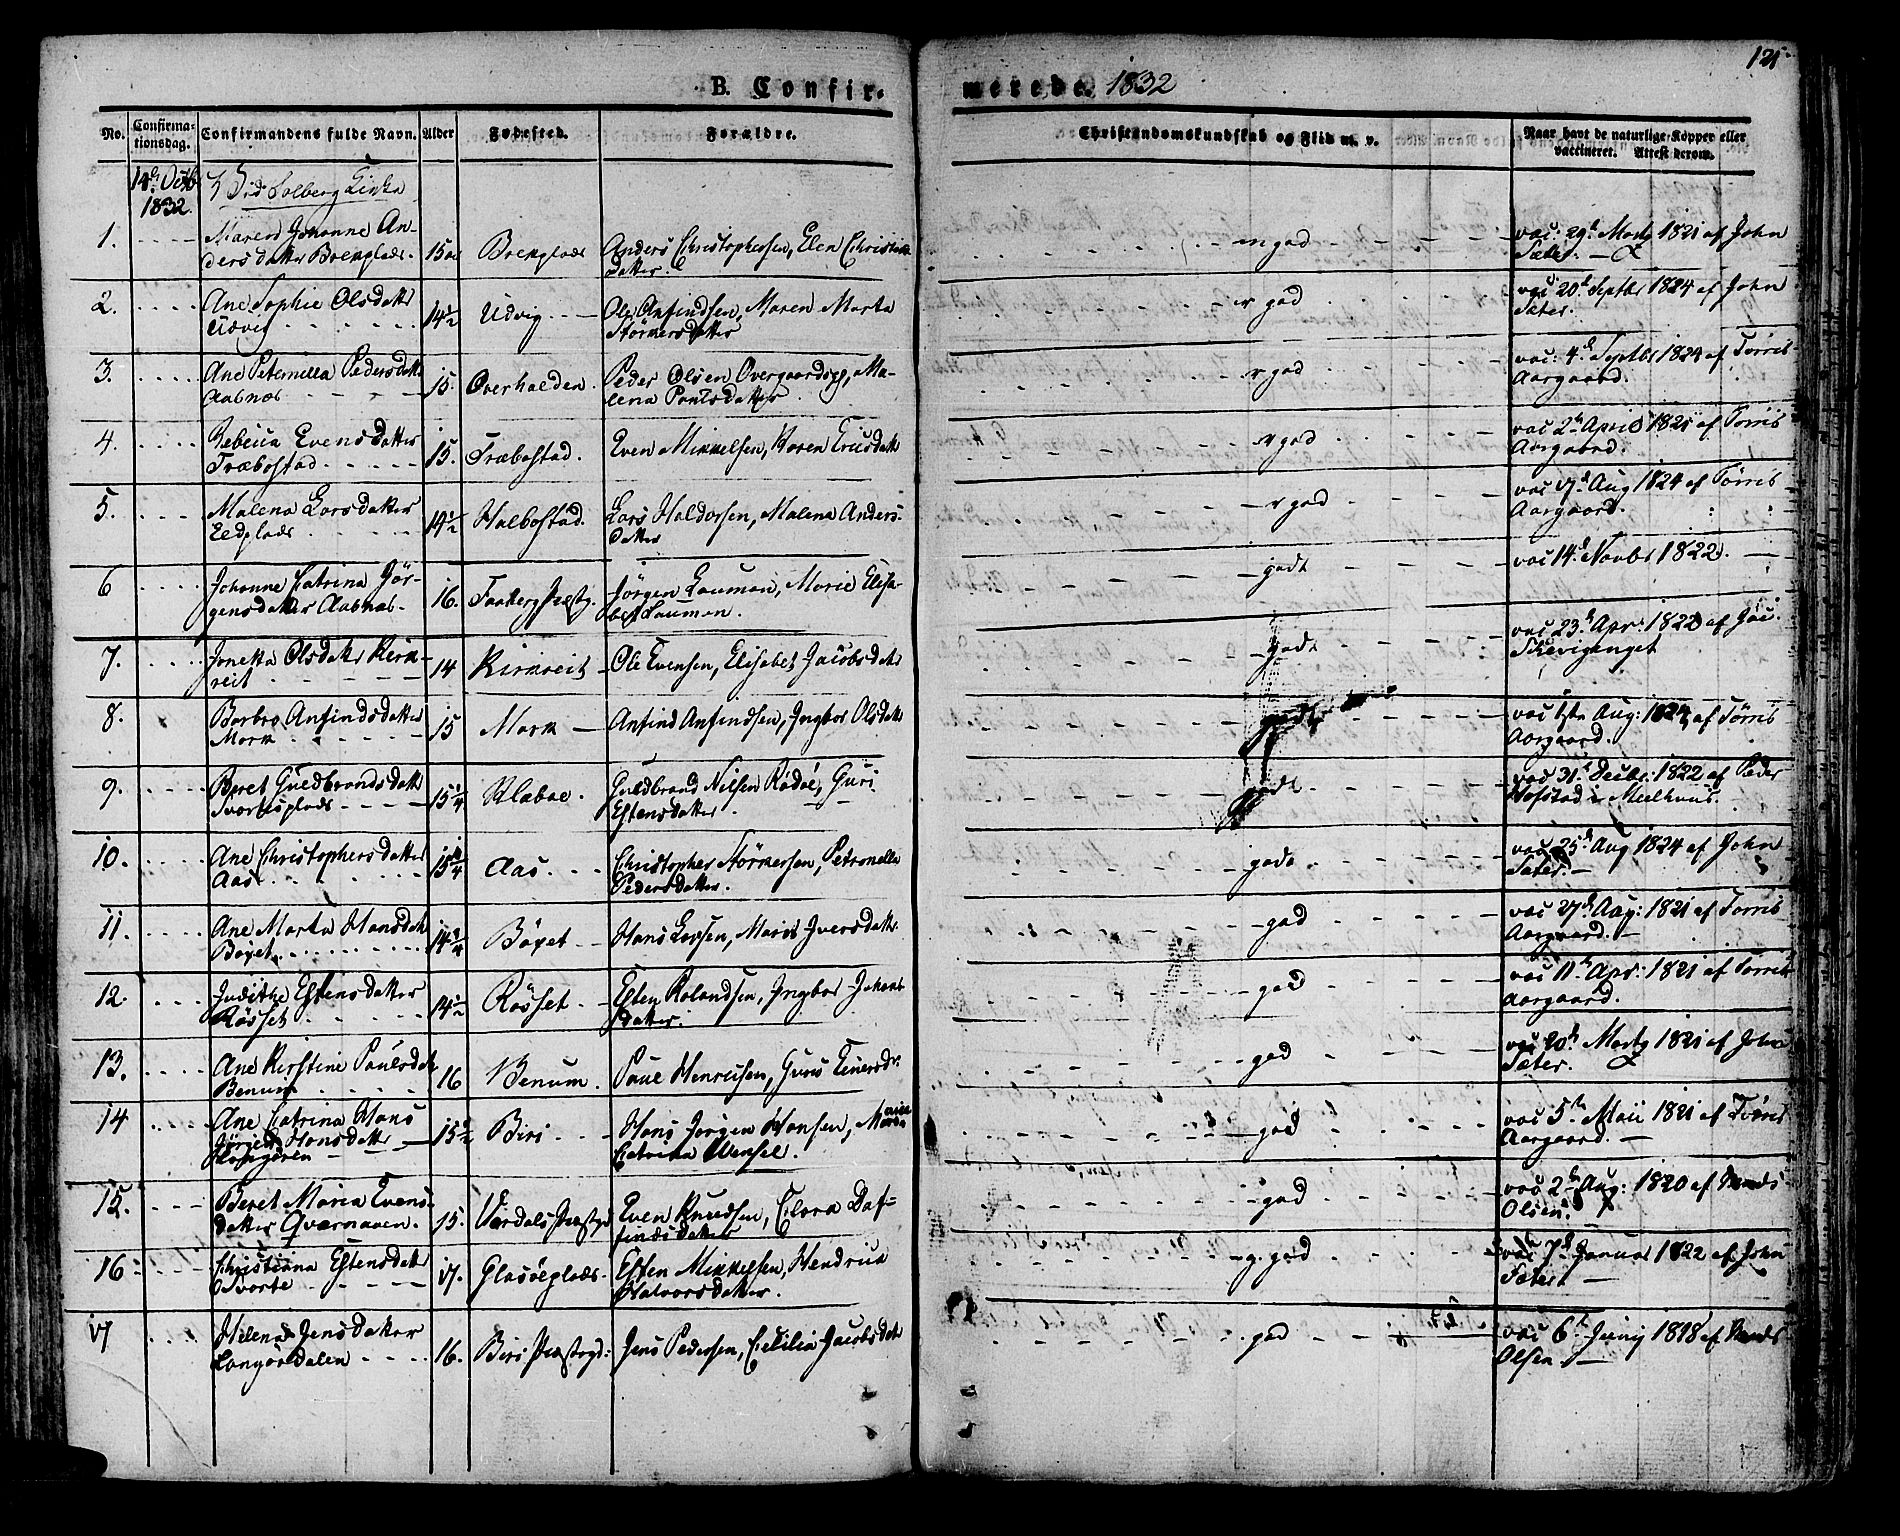 125
B. Confirmerede. 1832
No. Confirmationsdag. Confirmandens fulde Navn. Alder Fødested. Forældre. Christendomskundskab og Flid m. v. Naar havt de naturlige Kopper eller vaccineret. Attest derom.
14de Octb 1832. Ved Solberg Kirke
1. Maren Johanne Andersdatter Boxnplads. 15 Anders Christophersen, Elen Christens datter. m god vac: 29de Martz 1821 af John Sæter.
2. Ane Sophie Olsdatter Udvig 14 1/2 Udvig Ole Anfindsen, Maren Marta Størkersdatter v god vac: 20de Septbr 1824 af John Sæter.
3. Ane Peternella Pedersdatter Aasnæs 15. Overhalden. Peder Olsen Overgaardsp, Malena Paulsdatter. v god vac: 4de Septbr 1824 af Tørris Aargaard.
4. Rebecca Evensdatter Træbostad 15. Træbostad. Even Mikkelsen, Karen Ericsdatter v god vac 2de April 1821 af Tørris Aargaard.
5. Malena Larsdatter Eidplads. 14 1/2 Halbostad. Lars Haldorsen, Malena Andersdatter v god vac 17de Aug 1824 af Tørris Aargaard.
6 Johanne Catrina Jörgensdatter Aasnæs. 16. Faabergs Præstg. Jörgen Lauman, Marie Elisabet Lauman. godt vac 14de Novbr 1822.
7. Jonetta Olsdatter Kirkreit 14 Kirkreit Ole Evensen, Elisabet Jacobsdatter godt vac 23de Apr: 1822 af
8. Barbro Anfindsdatter Mork 15 Mork Anfind Anfindsen, Ingbor Olsdatter godt vac Aug: 1824 af Tørris Aargaard.
9. Beret Guldbrandsdatter Svortesplads 15 1/4 Klæboe. Guldbrand Nilsen Rödöe, Guri Estensdatter. godt vac 31te Decbr: 1822 af Peder Hofstad i Meelhuus.
10. Ane Christophersdatter Aas 15 3/4 Aas Christopher Størkersen, Petronella Pedersdatter. god vac 25de Aug 1824 af John Sæter.
11. Ane Marta Hansdatter Böxet 14 3/4 Böxet Hans Larsen, Marit Iversdatter. god vac 27de Aug: 1821 af Tørris Aargaard.
12. Judithe Estensdatter Rösset 14 1/2 Rösset Esten Rolandsen, Ingbor Johansdatter. god vac 11te Apr: 1821 af Tørris Aargaard.
13. Ane Kirstine Paulsdatter Benum 16 Benum. Paul Henricsen, Guru Einersdr. god vac 20de Martz 1821 af John Sæter.
14 Ane Catrina Hans Jörgen Hansdatter 15 1/2 Biri Hans Jörgen Hansen, Maria Catrina Wensel. god vac 5te Maii 1821 af Tørris Aargaard.
15. Beret Maria Evensdatter Qvernaven. 15. Værdals Præstgd Even Knudsen, Clora Daffindsdatter god vac 2den Aug: 1820 af Olsen.
16. Christiana Estensdatter Svorte 17. Glasöeplads. Esten Mikkelsen, Hendrica Halvorsdatter. g. god vac 7de Januar 1822 af John Sæter.
17 Helena Jensdatter Langördalen 16. Biri Præstegd: Jens Pedersen, Cecilia Jacobsdatter god vac 6te Junij 1818 af Olsen.